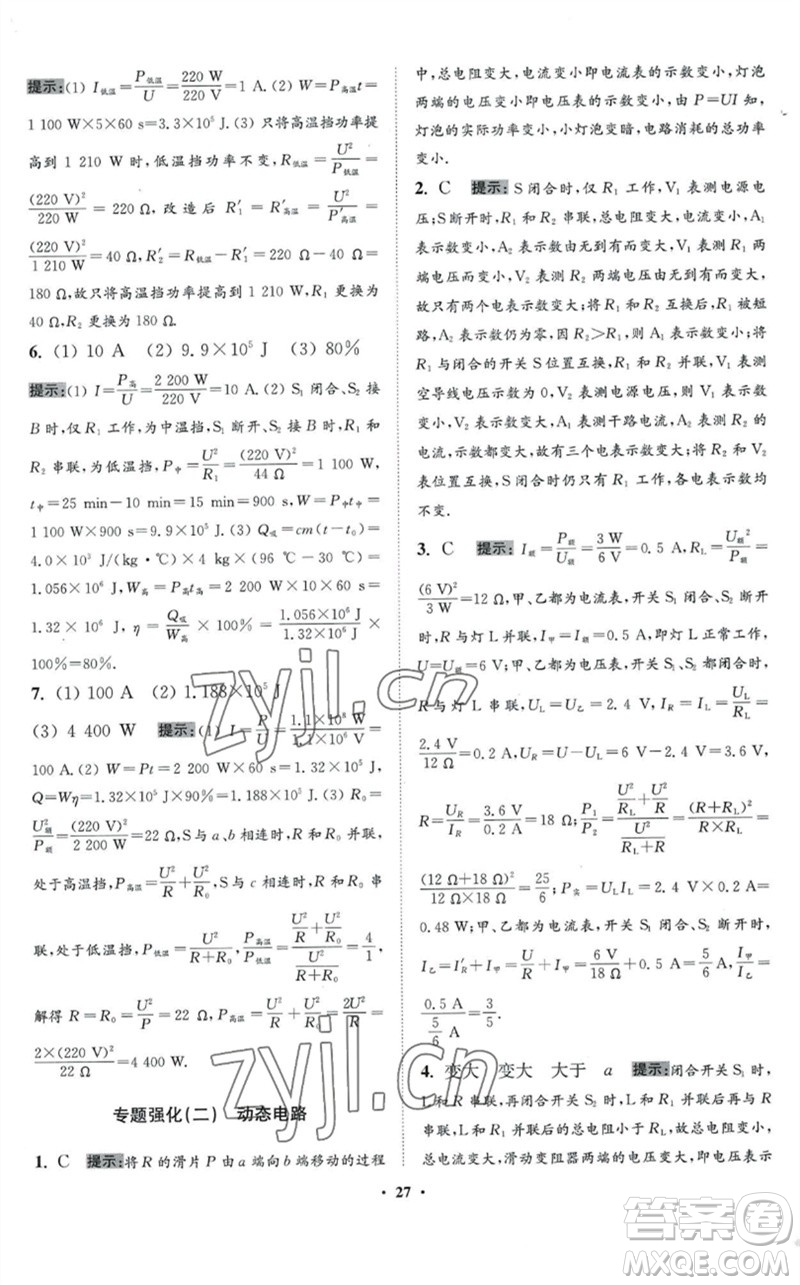 提示:(1) I低温=P低温/U=220 W/220 V=1 A.(2) W=P高温t=
1 100 W×5×60 s=3.3×10⁵ J.(3) 只将高温挡功率提
高到 1 210 W,低温挡功率不变,R低温=U²/P低温=
(220 V)²/220 W=220 Ω,改造后 R′₁=U²/P′高温=
(220 V)²/1 210 W=40 Ω,R′₂=R低温-R′₁=220 Ω-40 Ω=
180 Ω,故只将高温挡功率提高到 1 210 W,R₁ 更换为
40 Ω,R₂ 更换为 180 Ω.
6. (1) 10 A (2) 9.9×10⁵ J (3) 80%
提示:(1) I=P高/U=2 200 W/220 V=10 A.(2) S₁ 闭合、S₂ 接
B 时,仅 R₁ 工作,为中温挡,S₁ 断开、S₂ 接 A 时,R₁ 和
R₂ 串联,为低温挡,P中=U²/R₁=(220 V)²/44 Ω=1 100 W,
t中=25 min-10 min=15 min=900 s,W中=P中t中=
1 100 W×900 s=9.9×10⁵ J.(3) Q吸=cm(t-t₀)=
4.0×10³ J/(kg·℃)×4 kg×(96 ℃-30 ℃)=
1.056×10⁶ J,W高=P高t高=2 200 W×10×60 s=
1.32×10⁶ J,η=Q吸/W高×100%=1.056×10⁶ J/1.32×10⁶ J×
100%=80%.
7. (1) 100 A (2) 1.188×10⁵ J
(3) 4 400 W 提示:(1) I=P/U=1.1×10⁸ W/1.1×10⁶ V=
100 A.(2) W=Pt=2 200 W×60 s=1.32×10⁵ J,
Q=Wη=1.32×10⁵ J×90%=1.188×10⁵ J.(3) R₀=
U²额/P额=(220 V)²/2 200 W=22 Ω,S与 a、b 相连时,R 和 R₀ 并联,
处于高温挡,P高温=U²/R+U²/R₀,S与 c 相连时,R 和 R₀ 串
联,处于低温挡,P低温=U²/(R+R₀),P高温/P低温=(U²/R+U²/R₀)/(U²/(R+R₀))=4/1,
解得 R=R₀=U²/P=22 Ω,P高温=U²/R+U²/R₀=2U²/R=
2×(220 V)²/22 Ω=4 400 W.
专题强化(二) 动态电路
1. C 提示:将 R 的滑片 P 由 a 端向 b 端移动的过程
中,总电阻变大,电流变小即电流表的示数变小,灯泡
两端的电压变小即电压表的示数变小,由 P=UI 知,
灯泡的实际功率变小,小灯泡变暗,电路消耗的总功率
变小.
2. C 提示:S 闭合时,仅 R₁ 工作,V₁ 表测电源电
压;S断开时,R₁ 和 R₂ 串联,总电阻变大,电流变小,A₁
表示数变小,A₂ 表示数由无到有而变大,V₁ 表测 R₁ 两
端电压而变小,V₂ 表示数由无到有而变大,
故只有两个电表示数变大;R₁ 和 R₂ 互换后,R₁ 被短
路,A₂ 表示数仍为零,因 R₂>R₁,则 A₁ 表示数变小,
R₁ 与闭合的开关 S 位置互换,R₁ 和 R₂ 并联,V₁ 表测
空导线电压而变小,V₂ 表测电源电压,A₂ 表示数由无
到有而变大,A₁ 测干路电流,A₁ 表示数变
大,示数都变大,故有三个电表示数变大;R₂ 和 V₂
表位置互换后,S闭合时仍只有 R₁ 工作,各电表示数均
不变.
3. C 提示:I额=P额/U额=3 W/6 V=0.5 A,R_L=U额²/P额=
(6 V)²/3 W=12 Ω,甲、乙都为电流表,开关 S₁ 闭合、S₂ 断开
时,R与灯L并联,I甲=I额=0.5 A,灯L正常工作,
U=U额=6 V;甲、乙都为电压表,S₁、S₂ 都闭合时,
R 与灯 L 串联,U_L=U乙=2.4 V,I_R=I_L=U_L/R_L=
2.4 V/12 Ω=0.2 A,U_R=U-U_L=6 V-2.4 V=3.6 V,
R=U_R/I_R=3.6 V/0.2 A=18 Ω,P₁/P₂=(U²/R_L+U²/R)/(U²/(R_L+R))=(R+R_L)²/(R×R_L)=
(12 Ω+18 Ω)²/(12 Ω×18 Ω)=25/6,P实=U_L I_L=2.4 V×0.2 A=
0.48 W;甲、乙都为电流表,开关 S₁ 闭合、S₂ 断开时,
I乙=I′_R+I甲=U/R+I甲=6 V/18 Ω+0.5 A=5/6 A,I甲/I乙=
0.5 A/(5/6 A)=3/5.
4. 变大 变大 大于 a 提示:闭合开关 S₁ 时,
L和R串联,再闭合开关 S₂ 时,L和R并联,总电阻变
小,总电流变大,滑动变阻器两端的电压变大,电压表示
• 27 •
zyjl.cn
zyjl.cn
答案卷
MXQE.COM